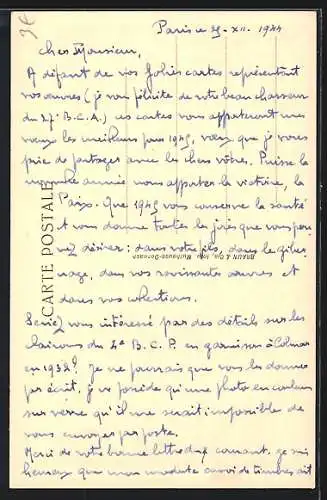 Paris le 29-XII. 1944
Cher Monsieur,
A défaut de vos jolies cartes représentant
vos œuvres (je vous félicite de votre beau chasseur
du 27e B.C.A.) ces cartes vous apporteront mes
vœux les meilleurs pour 1945, vœux que je vous
prie de partager avec les chers vôtres. Puisse la
nouvelle année nous apporter la victoire, la
Paix. Que 1945 vous conserve la santé
et vous donne toutes les joies que vous pou-
vez désirer: dans votre fils, dans le
dans vos ravissantes œuvres et
dans vos collections.
Seriez vous intéressé par des détails sur les
clairons du 4e B.C.P. en garnison à Colmar
en 1932? Je ne pourrais que vous les donner
par écrit, je ne possède qu'une photo en couleurs
sur verre qu'il me serait impossible de
vous envoyer par poste.
Merci de votre bonne lettre du courant, je suis
heureux que mon modeste envoi de timbres ait
CARTE POSTALE
BRAUN & Cie, Mulhouse-Dornach